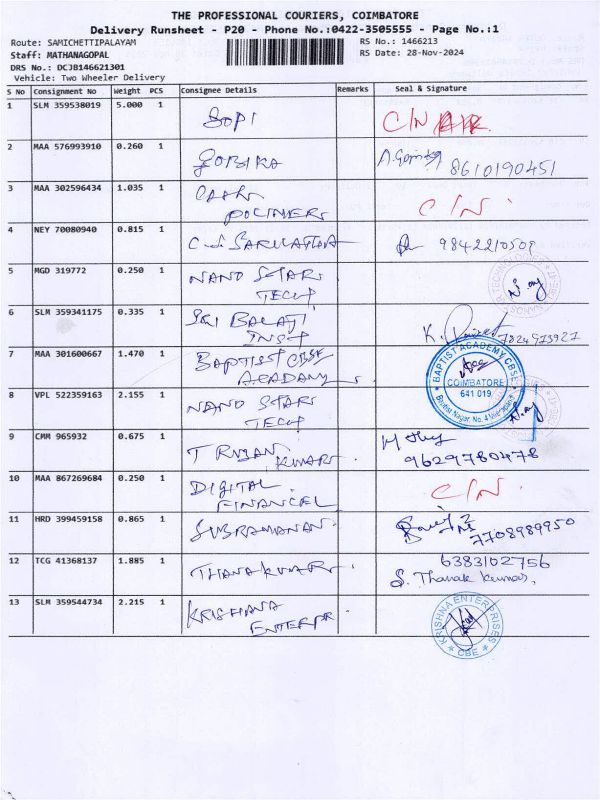 THE PROFESSIONAL COURIERS, COIMBATORE
Delivery Runsheet - P20 - Phone No.:0422-3505555 - Page No.:1
Route: SAMICHETTIPALAYAM RS No.: 1466213
Staff: MATHANAGOPAL RS Date: 28-Nov-2024
DRS No.: DCJB146621301
Vehicle: Two Wheeler Delivery
S No Consignment No Weight PCS Consignee Details Remarks Seal & Signature
1 SLM 359538019 5.000 1 GOPI C/N
2 MAA 576993910 0.260 1 GOBIKA 8610190451
3 MAA 302596434 1.035 1 C/N
POLYMERS
4 NEY 70080940 0.815 1 9842210509
5 MGD 319772 0.250 1 NANO STARS
TECH
6 SLM 359341175 0.335 1 SRI BALAJI K.
INST 7824973927
7 MAA 301600667 1.470 1 BAPTIST CBSE BAPTIST ACADEMY CBSE
ACADAMY COIMBATORE
641 019
8 VPL 522359163 2.155 1 NANO STARS
TECH
9 CMM 965932 0.675 1 T
KUMAR 9629780478
10 MAA 867269684 0.250 1 DIGITAL C/N
FINANCEL
11 HRD 399459158 0.865 1 SUBRAMANAN
7708989950
12 TCG 41368137 1.885 1 THANAKUMAR 6383102756
S. Thanak Kumar,
13 SLM 359544734 2.215 1 KRISHANA KRISHNA ENTERPRISES
ENTERPR CBE